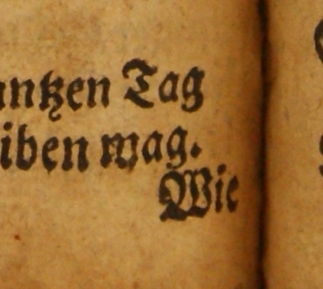 ntzen Tag
iben mag.
Wie